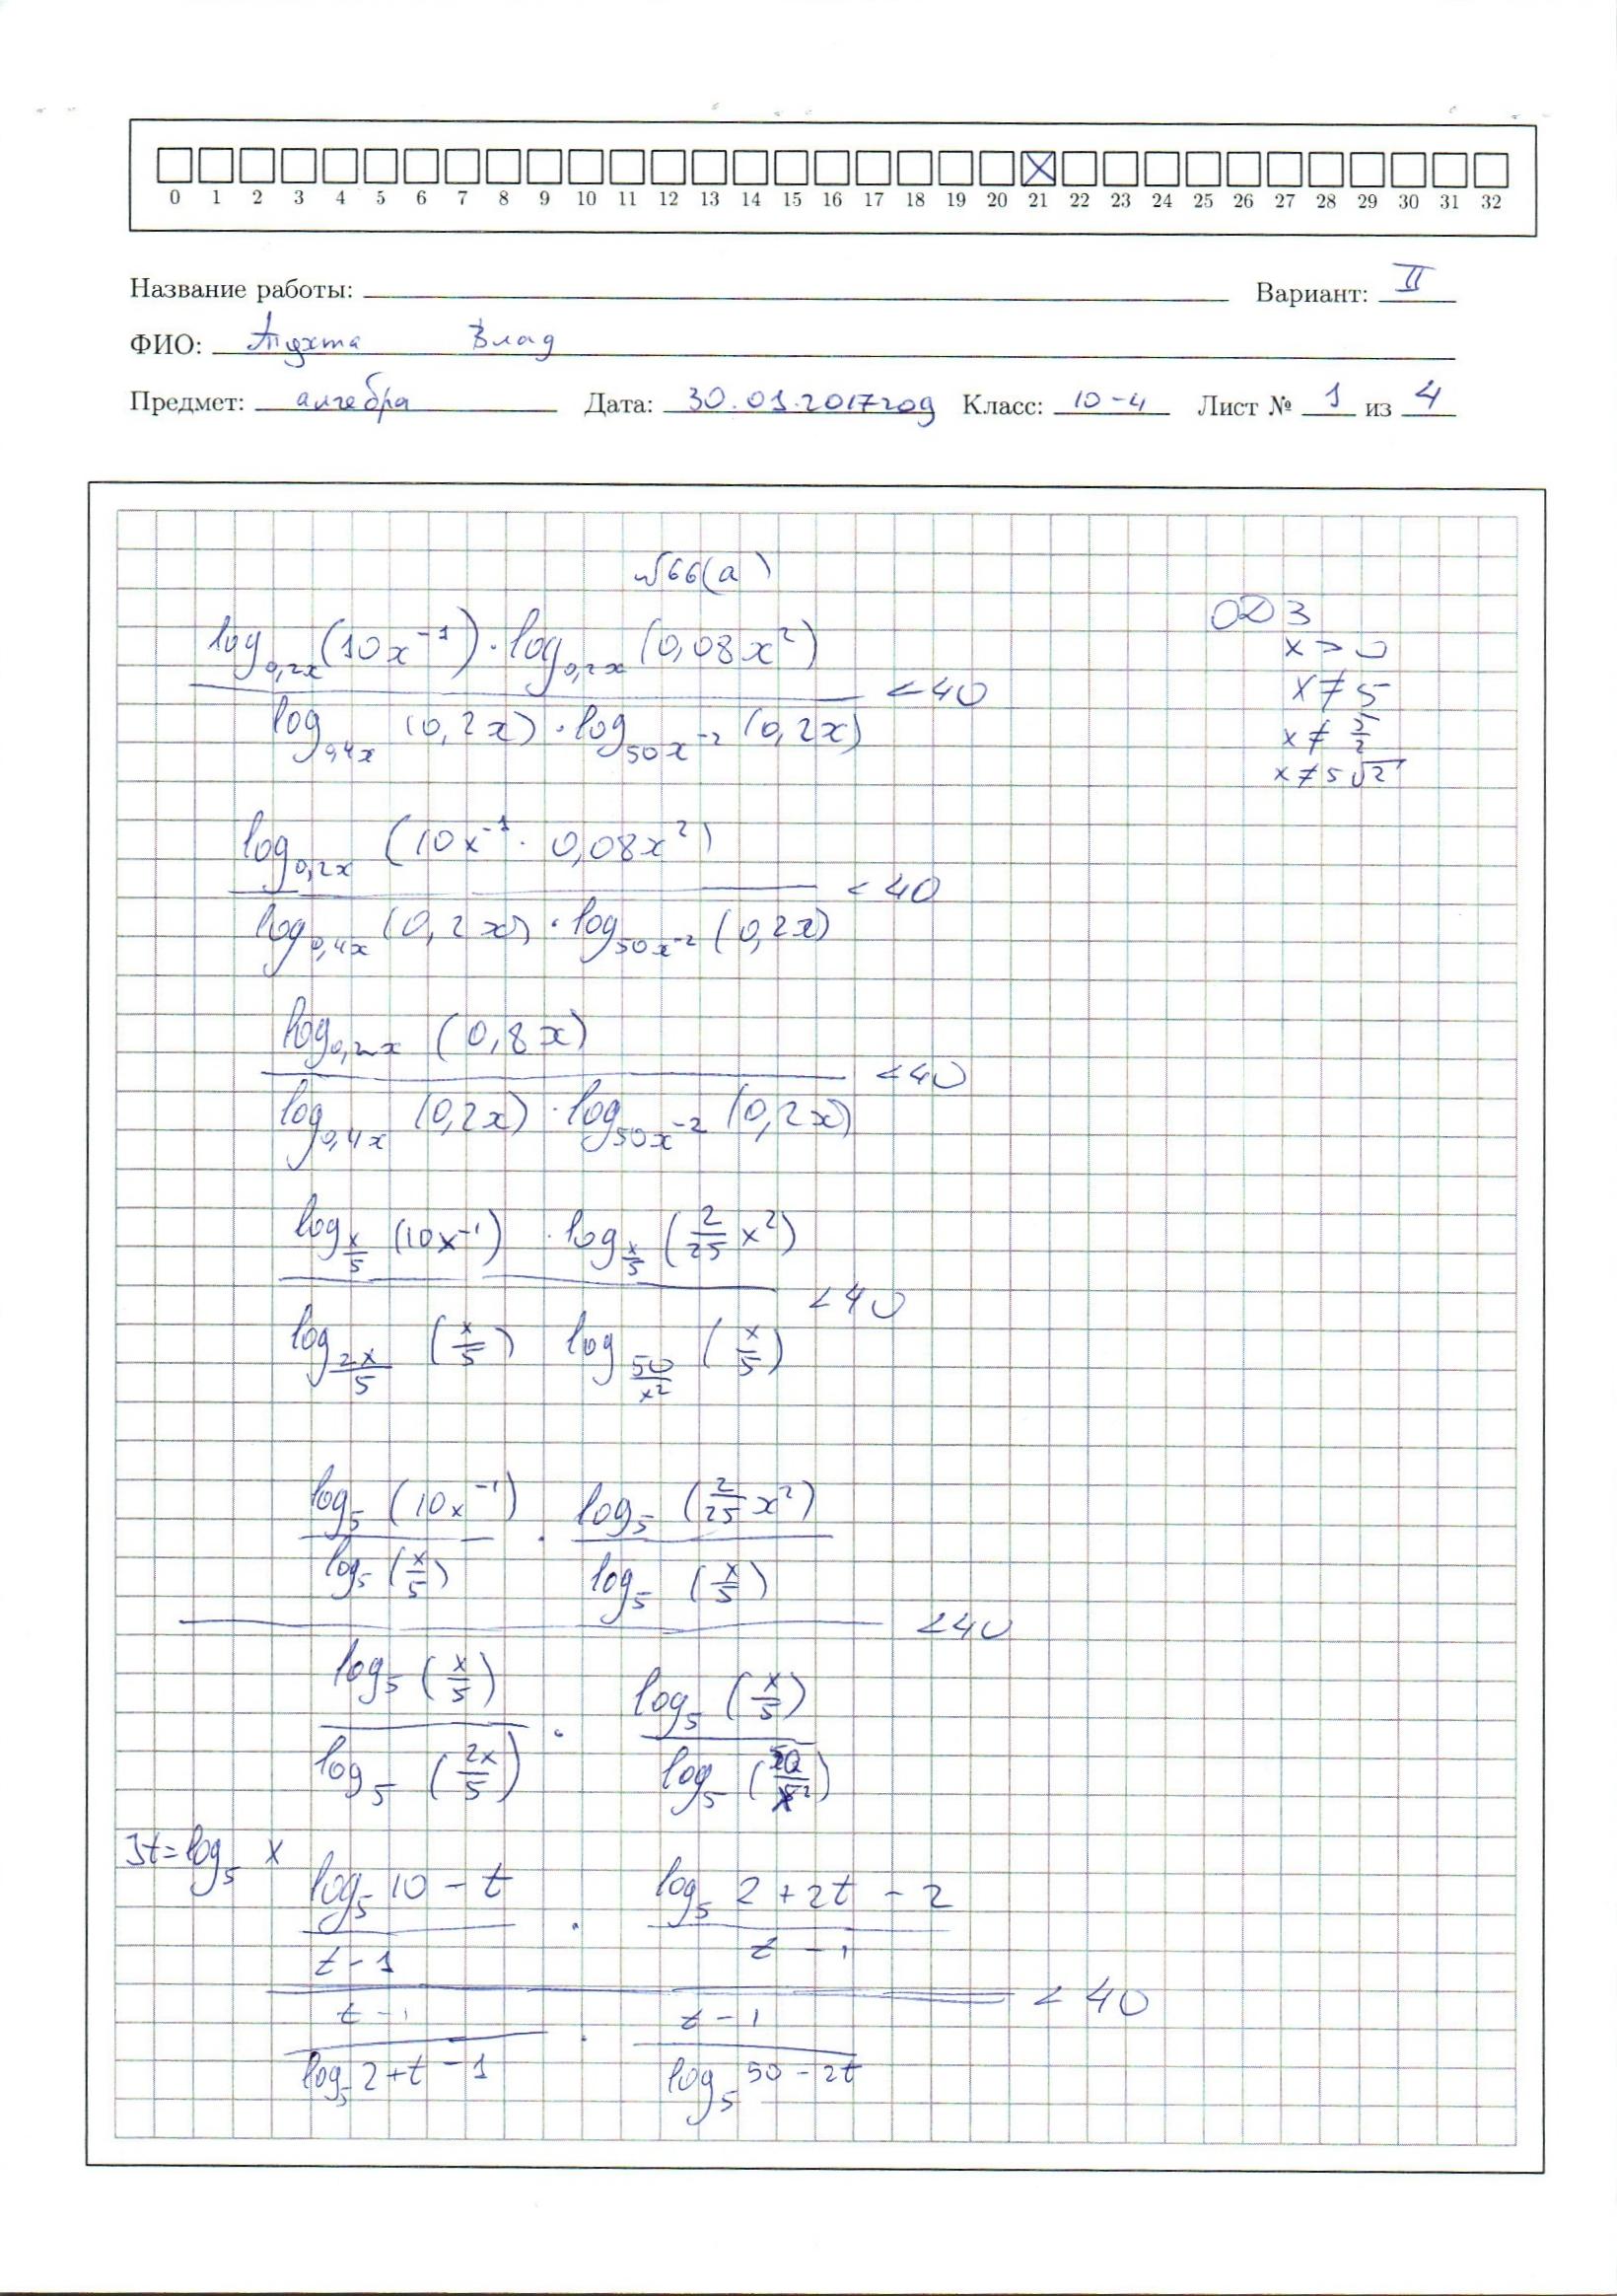 0 1 2 3 4 5 6 7 8 9 10 11 12 13 14 15 16 17 18 19 20 21 22 23 24 25 26 27 28 29 30 31 32
Название работы: Вариант: II
ФИО: Влад
Предмет: алгебра Дата: 30.01.2017год Класс: 10-4 Лист № 1 из 4
№66(а)
ОДЗ
x > 0
x ≠ 5
x ≠ 5/2
x ≠ 5√2
log_{0,2x}(10x^{-1}) · log_{0,2x}(0,08x^2)
< 40
log_{0,4x}(0,2x) · log_{50x^{-2}}(0,2x)
log_{0,2x}(10x^{-1} · 0,08x^2)
< 40
log_{0,4x}(0,2x) · log_{50x^{-2}}(0,2x)
log_{0,2x}(0,8x)
< 40
log_{0,4x}(0,2x) · log_{50x^{-2}}(0,2x)
log_{x/5}(10x^{-1}) · log_{x/5}(2/25 x^2)
< 40
log_{2x/5}(x/5) log_{50/x^2}(x/5)
log_5(10x^{-1}) · log_5(2/25 x^2)
log_5(x/5) log_5(x/5)
< 40
log_5(x/5) · log_5(x/5)
log_5(2x/5) log_5(50/x^2)
Jt = log_5 x
log_5 10 - t · log_5 2 + 2t - 2
t - 1 t - 1
< 40
t - 1 · t - 1
log_5 2 + t - 1 log_5 50 - 2t